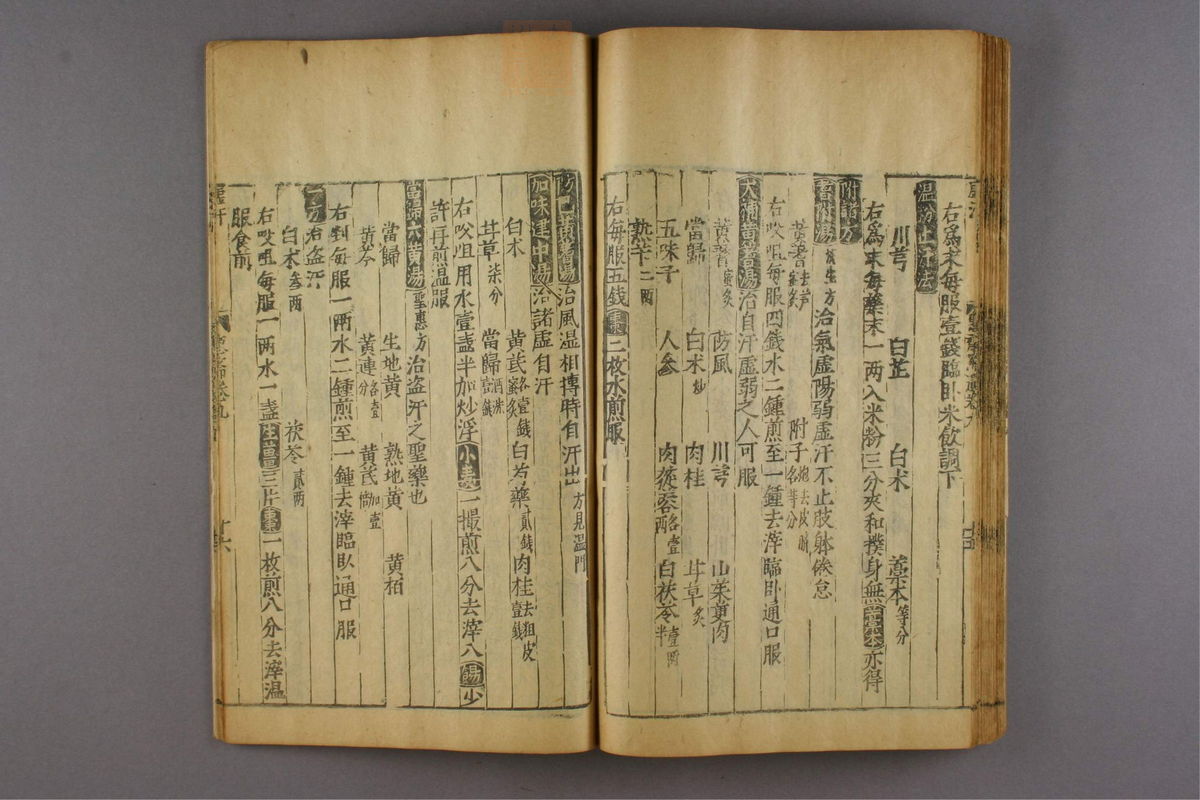 右爲末每服壹錢臨臥米飲調下
温粉止汗法
川芎 白芷 白术 藁本等分
右爲末每藥末一两入米粉三分夾和撲身無藁本亦得
附諸方
芪附湯 濟生方治氣虛陽弱虛汗不止肢躰倦怠
黄耆去芦蜜炙 附子炮去皮臍各等分
右㕮咀每服四錢水二鍾煎至一鍾去滓臨卧通口服
大補黄耆湯治自汗虛弱之人可服
黄耆蜜炙 防風 川芎 山茱萸肉
當歸 白术炒 肉桂 甘草炙
五味子 人參 肉蓯蓉 白茯苓壹两半
熟苄二两
右每服五錢棗二枚水煎服
防己黄耆湯治風温相搏時自汗出方見温門
加味建中湯治諸虛自汗
白术 黄芪蜜炙各壹錢 白芍藥貳錢 肉桂去粗皮壹錢
甘草柒分 當歸酒洗壹錢
右㕮咀用水壹盞半加炒浮小麦一撮煎八分去滓入餳少
許再煎温服
當歸六黄湯聖惠方治盗汗之聖藥也
當歸 生地黄 熟地黄 黄栢
黄芩 黄連各壹分 黄芪加壹倍
右剉每服一两水二鍾煎至一鍾去滓臨臥通口服
一方治盗汗
白术參两 茯苓貳两
右㕮咀每服一两水一盞生薑三片棗一枚煎八分去滓温
服食前